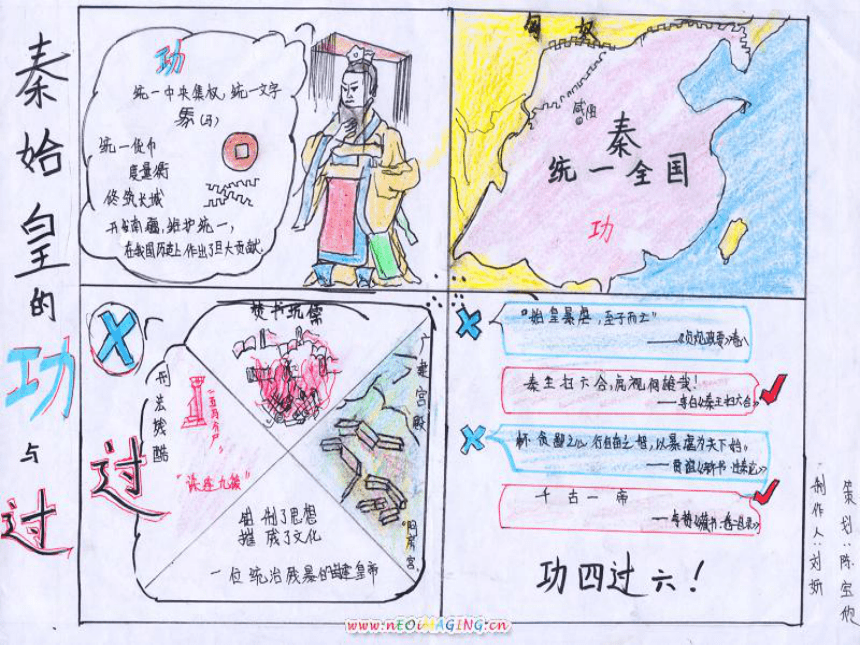 秦始皇的功与过
功
统一中央集权,统一文字
(马)
统一货币
度量衡
修筑长城
开发南疆,维护统一,
在我国历史上作出了巨大贡献.
匈奴
咸阳
秦
统一全国
功
焚书坑儒
刑法残酷
(五马分尸)
"诛连九族"
过
广建宫殿
"阿房宫"
钳制了思想
摧残了文化
一位统治残暴的封建皇帝
"始皇暴虐,至子而亡"
——《贞观政要》卷八
秦王扫六合,虎视何雄哉!
——李白《秦王扫六合》
怀贪鄙之心,行自奋之智,以暴虐为天下始。
——贾谊《新书·过秦论》
千古一帝
功四过六!
策划:陈宝怡
制作人:刘妍
www.nEOiMAGING.cn